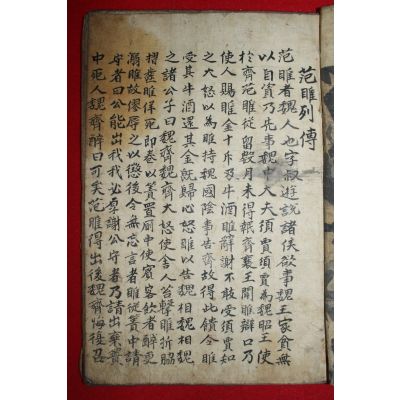 范睢列傳
范睢者魏人也字叔遊說諸侯欲事魏王家貧無
以自資乃先事魏中大夫須賈須賈爲魏昭王使
於齊范睢從留數月未得報齊襄王聞睢辯口乃
使人賜睢金十斤及牛酒睢辭謝不敢受須賈知
之大怒以爲睢持魏國陰事告齊故得此饋令睢
受其牛酒還其金旣歸心怒睢以告魏相魏相魏
之諸公子曰魏齊魏齊大怒使舍人笞擊睢折脇
摺齒睢佯死卽卷以簀置厠中使賓客飲者醉更
溺睢故僇辱之以懲後令無忘言者睢從簀中謂
守者曰公能出我我必厚謝公守者乃請出棄簀
中死人魏齊醉曰可矣范睢得出後魏齊悔復召